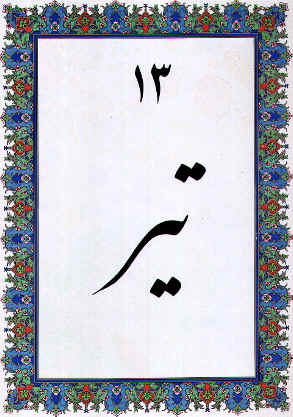 ۱۳
تیر